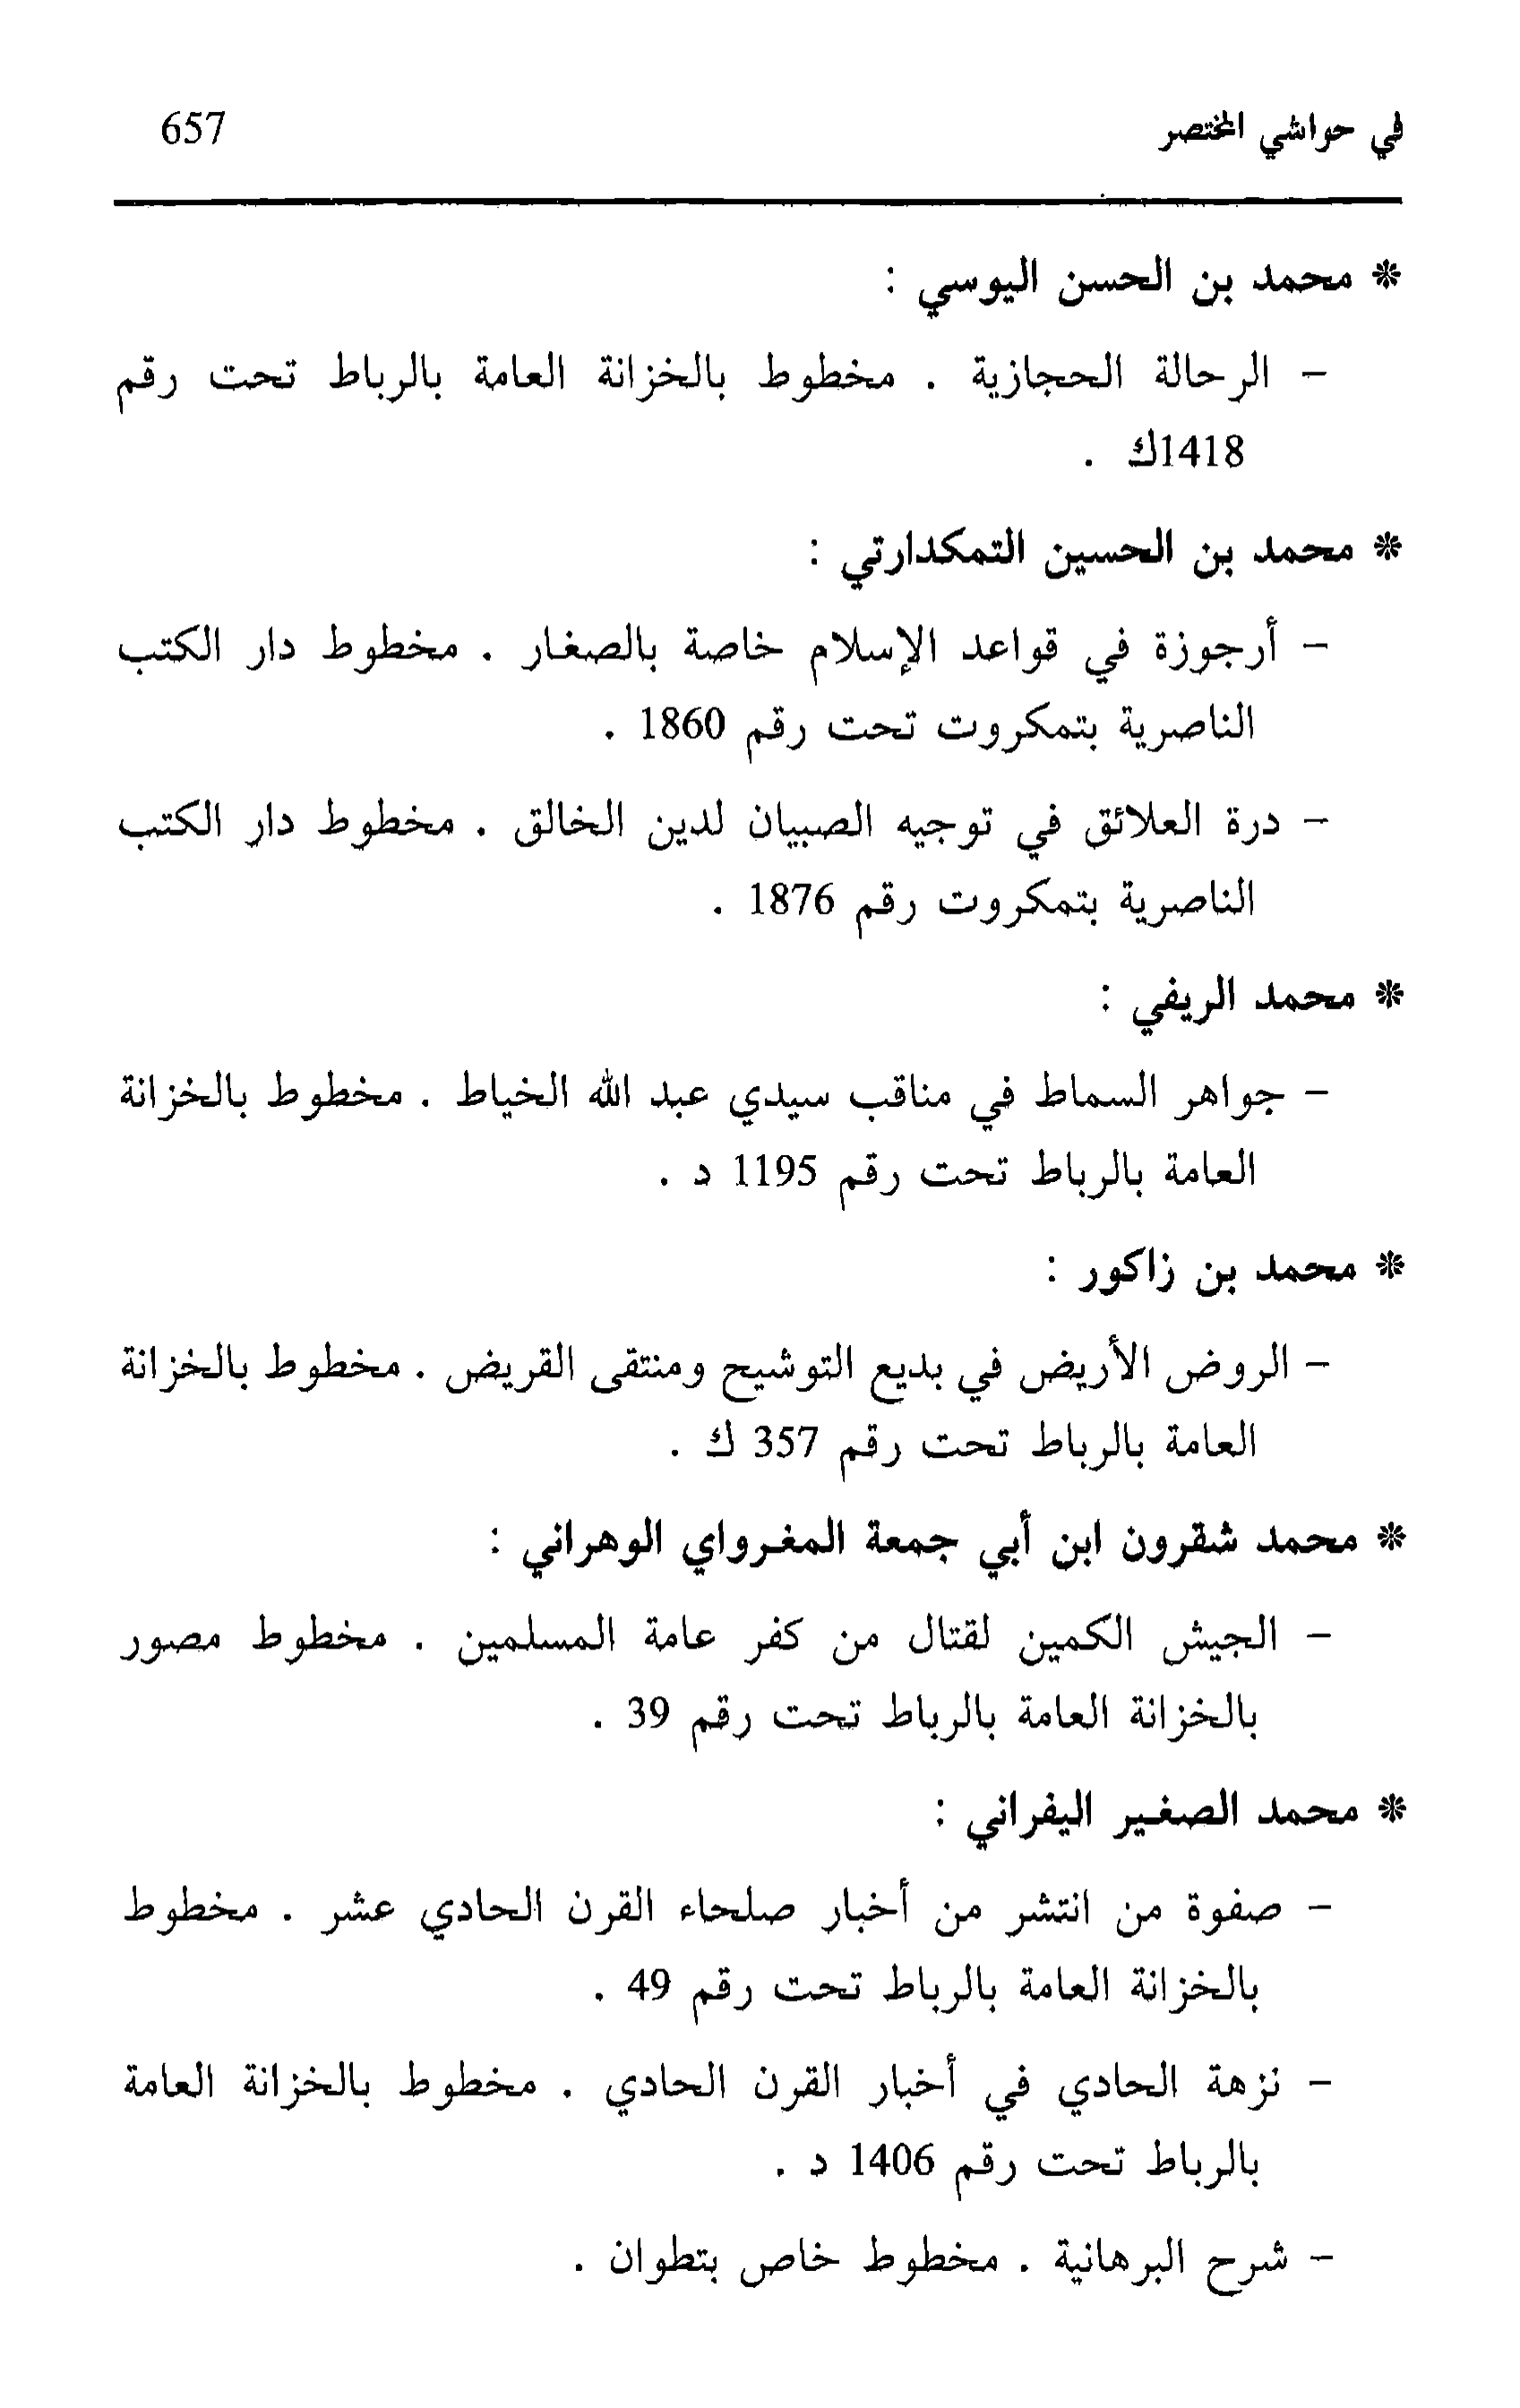 في حواشي المختصر 657
* محمد بن الحسن اليوسي :
- الرحالة الحجازية . مخطوط بالخزانة العامة بالرباط تحت رقم
1418ك .
* محمد بن الحسين التمكدارتي :
- أرجوزة في قواعد الإسلام خاصة بالصغار . مخطوط دار الكتب
الناصرية بتمكروت تحت رقم 1860 .
- درة العلائق في توجيه الصبيان لدين الخالق . مخطوط دار الكتب
الناصرية بتمكروت رقم 1876 .
* محمد الريفي :
- جواهر السماط في مناقب سيدي عبد الله الخياط . مخطوط بالخزانة
العامة بالرباط تحت رقم 1195 د .
* محمد بن زاكور :
- الروض الأريض في بديع التوشيح ومنتقى القريض . مخطوط بالخزانة
العامة بالرباط تحت رقم 357 ك .
* محمد شقرون ابن أبي جمعة المغرواي الوهراني :
- الجيش الكمين لقتال من كفر عامة المسلمين . مخطوط مصور
بالخزانة العامة بالرباط تحت رقم 39 .
* محمد الصغير اليفراني :
- صفوة من انتشر من أخبار صلحاء القرن الحادي عشر . مخطوط
بالخزانة العامة بالرباط تحت رقم 49 .
- نزهة الحادي في أخبار القرن الحادي . مخطوط بالخزانة العامة
بالرباط تحت رقم 1406 د .
- شرح البرهانية . مخطوط خاص بتطوان .